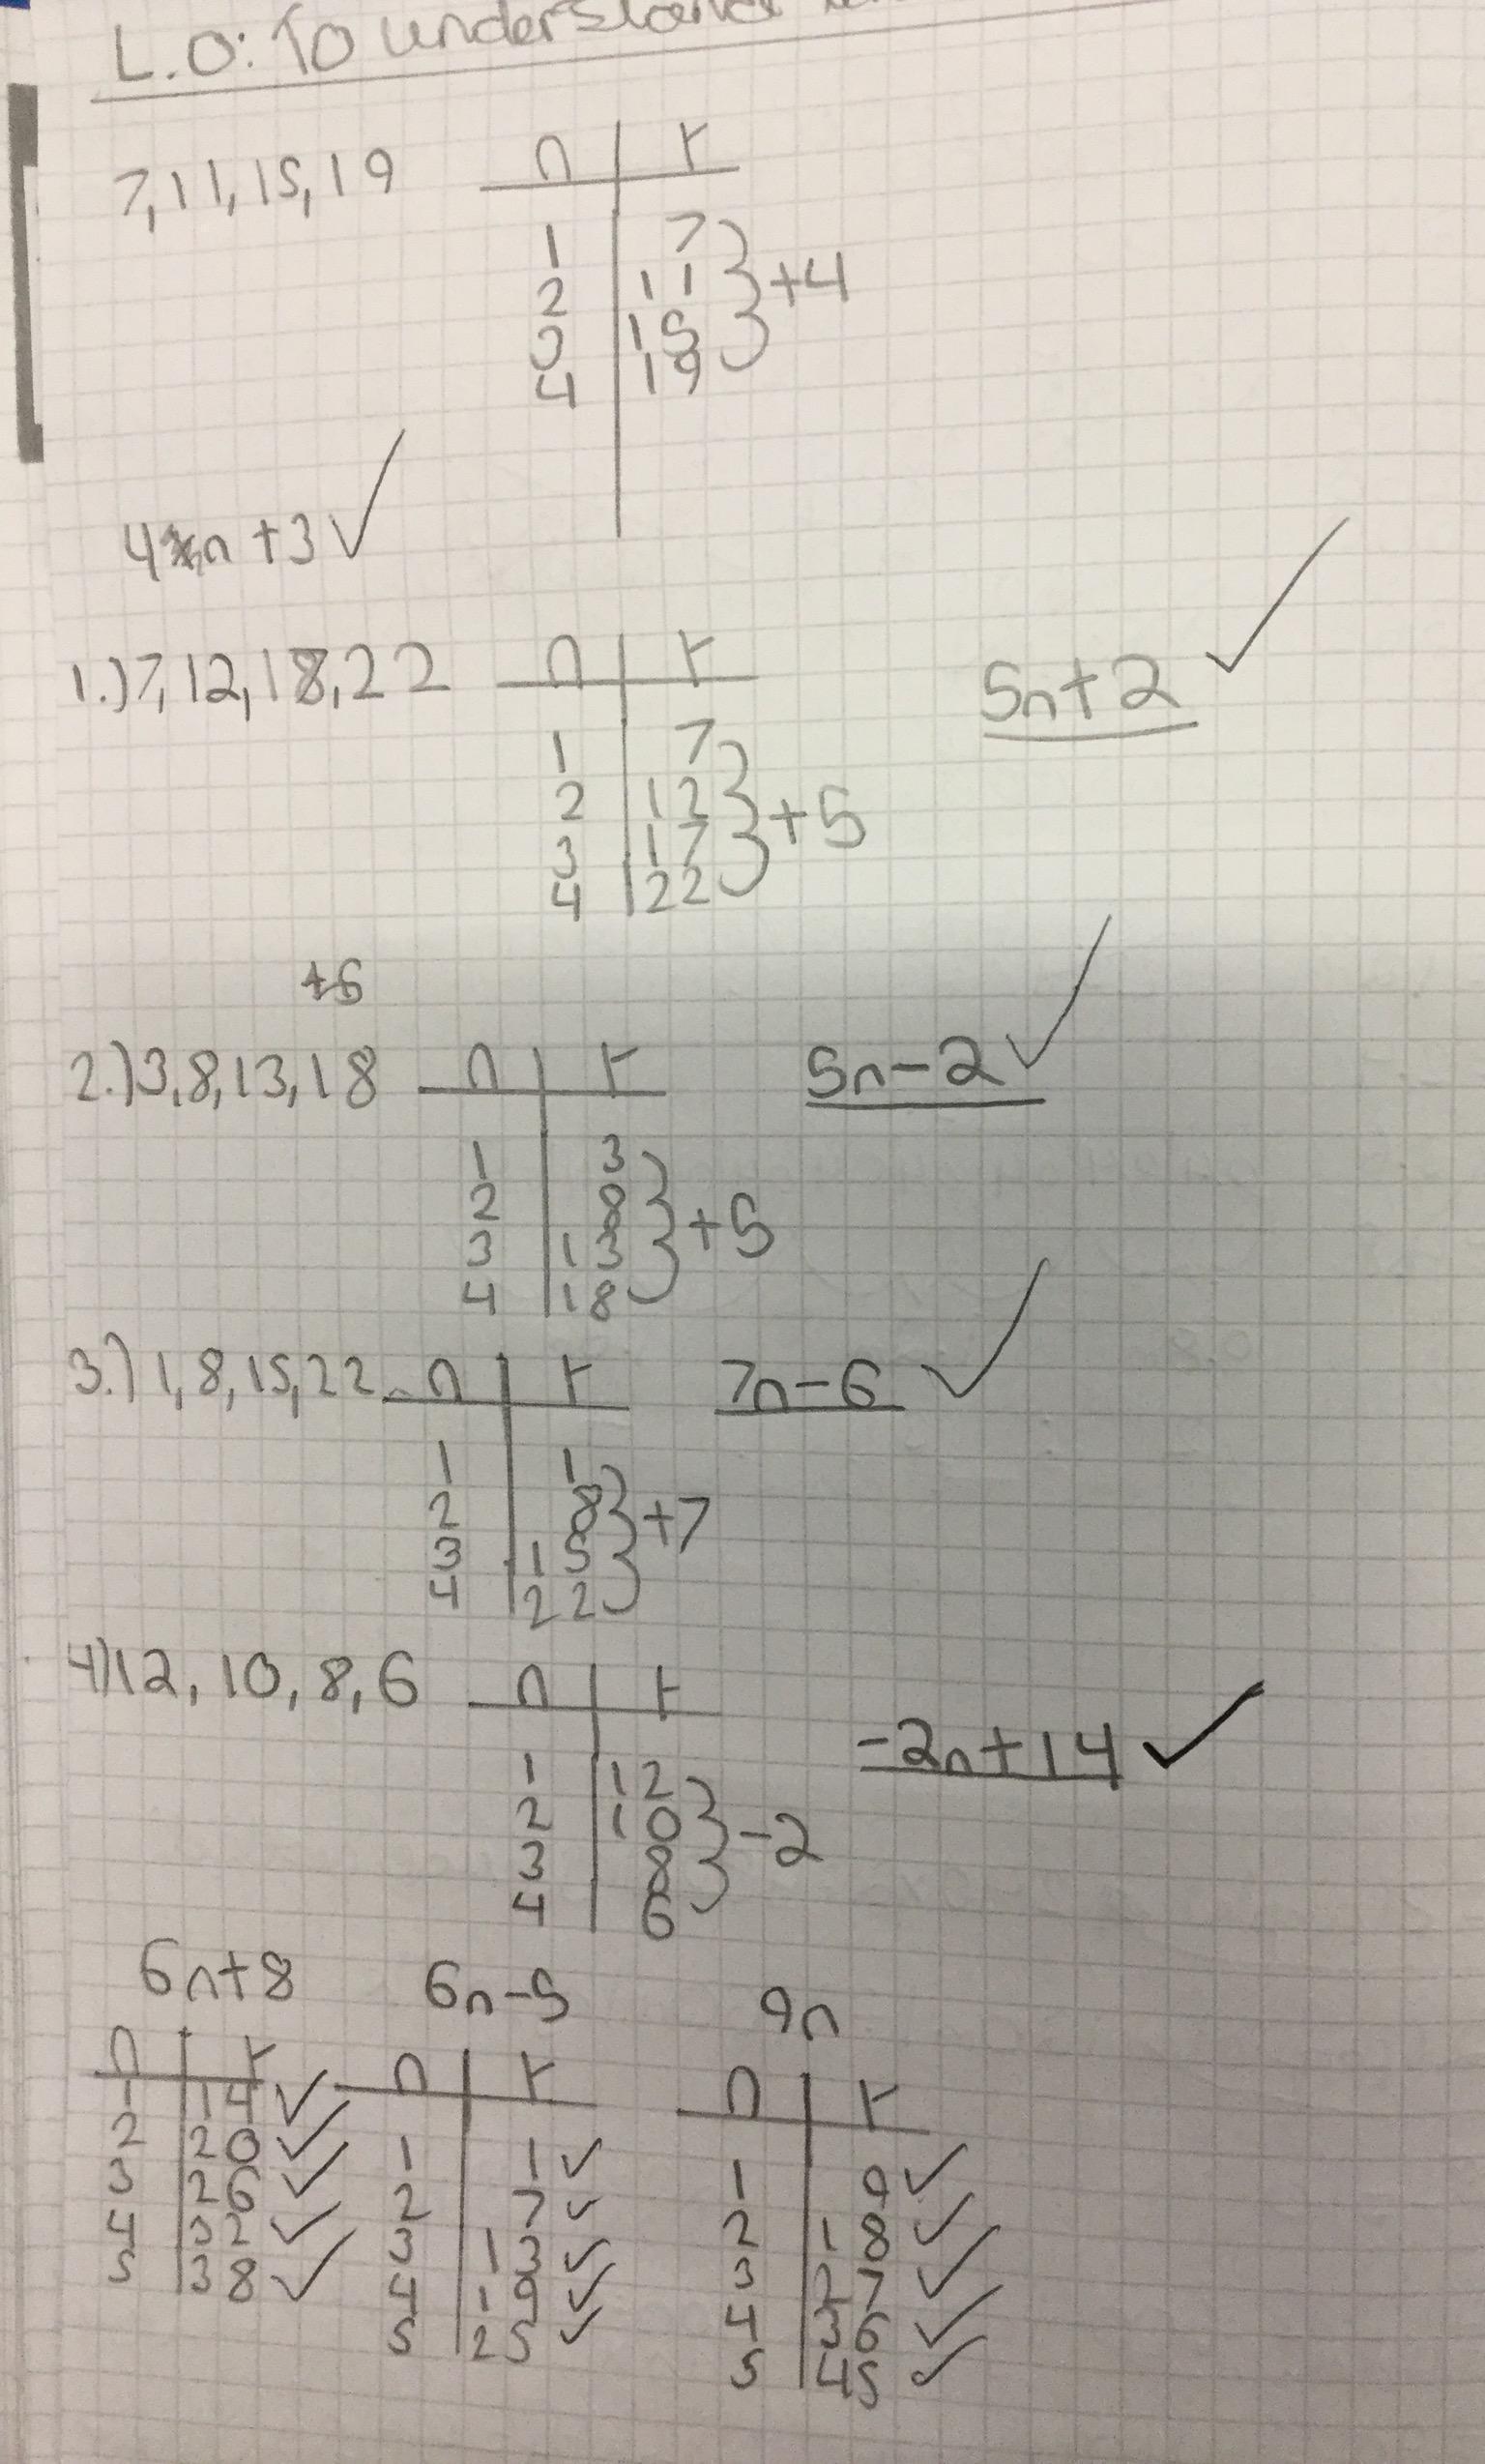 L.O: To understand
7, 11, 15, 19
n r
1 7
2 11
3 15
4 19
+4
4n +3
1.) 7, 12, 18, 22
n r
1 7
2 12
3 17
4 22
+5
5n+2
+6
2.) 3, 8, 13, 18
n r
1 3
2 8
3 13
4 18
+5
5n-2
3.) 1, 8, 15, 22
n r
1 1
2 8
3 15
4 22
+7
7n-6
4) 12, 10, 8, 6
n r
1 12
2 10
3 8
4 6
-2
-2n+14
6n+8
n r
1 14
2 20
3 26
4 32
5 38
6n-5
n r
1 1
2 7
3 13
4 19
5 25
9n
n r
1 9
2 18
3 27
4 36
5 45